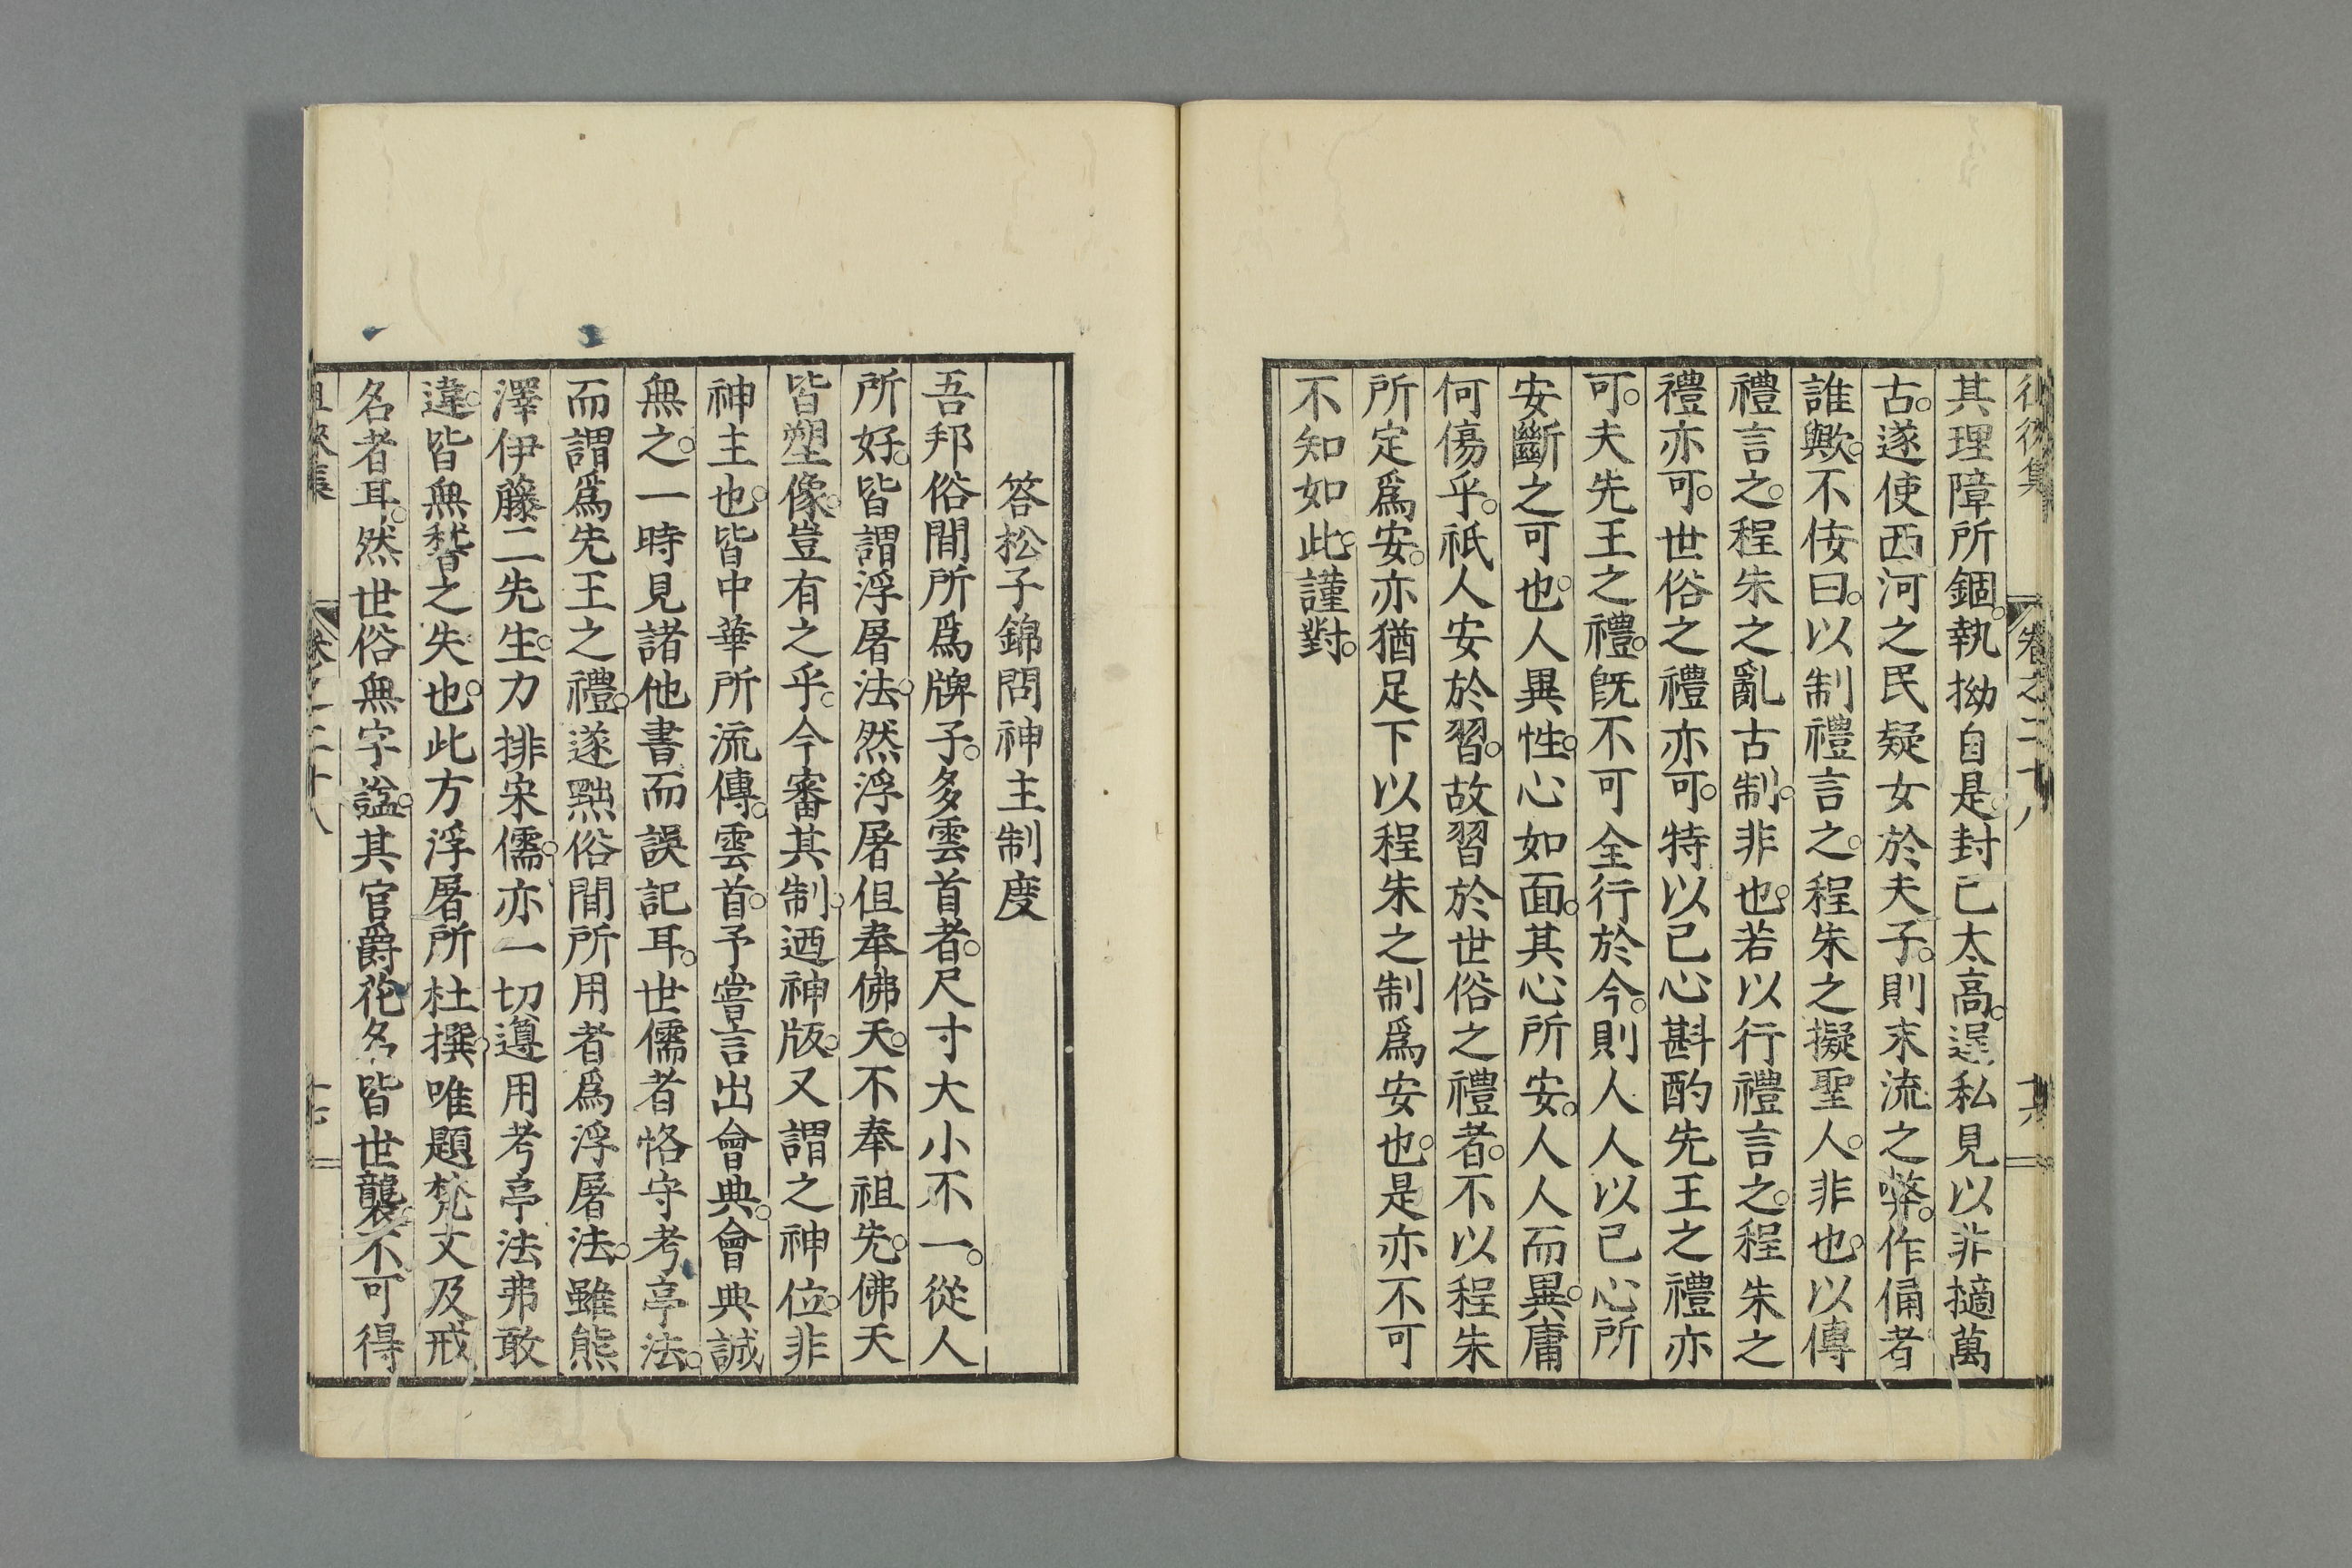 其理障所錮。執拗自是。封己太高。逞私見以非擿萬
古。遂使西河之民疑女於夫子。則末流之弊。作俑者
誰歟。不佞曰。以制禮言之。程朱之擬聖人。非也。以傳
禮言之。程朱之亂古制。非也。若以行禮言之。程朱之
禮亦可。世俗之禮亦可。特以己心斟酌先王之禮亦
可。夫先王之禮。既不可全行於今。則人人以己心所
安斷之可也。人異性。心如面。其心所安。人人而異。庸
何傷乎。祇人安於習。故習於世俗之禮者。不以程朱
所定爲安。亦猶足下以程朱之制爲安也。是亦不可
不知如此。謹對。
答松子錦問神主制度
吾邦俗間所爲牌子。多雲首者。尺寸大小不一。從人
所好。皆謂浮屠法。然浮屠但奉佛天。不奉祖先。佛天
皆塑像。豈有之乎。今審其制。迺神版。又謂之神位。非
神主也。皆中華所流傳。雲首。予嘗言出會典。會典誠
無之。一時見諸他書而誤記耳。世儒者恪守考亭法。
而謂爲先王之禮。遂黜俗間所用者爲浮屠法。雖熊
澤伊藤二先生。力排宋儒。亦一切遵用考亭法弗敢
違。皆無稽之失也。此方浮屠所杜撰。唯題梵文及戒
名者耳。然世俗無字諡。其官爵佗名皆世襲。不可得
卷之二十八